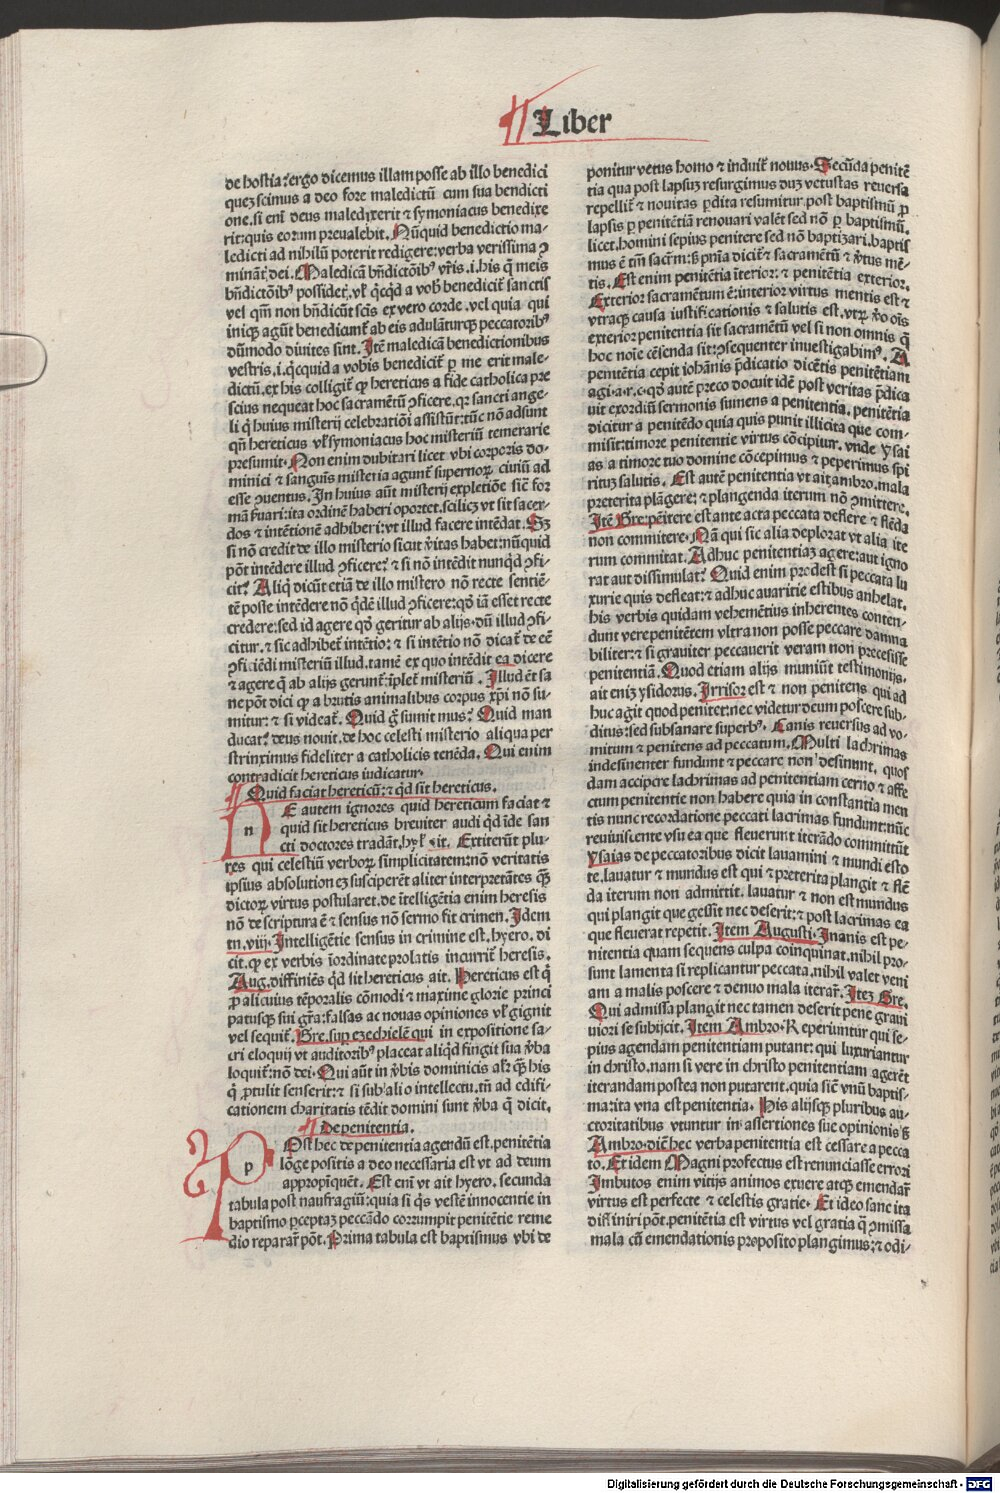 Liber
de hostia? ergo dicemus illam posse ab illo benedici
quez scimus a deo fore maledictū cum sua bendicti
one. si eni deus maledixerit ⁊ symoniacus benedixe
rit: quis eorum prevalebit. Nūquid benedictio ma-
ledicti ad nihilū poterit redigere: verba verissima ꝯ
minātꝭ dei. Maledicā bn̄dictōibꝰ vr̄is .i. his q̄ meis
bn̄dictōibꝰ possidetꝭ, vl̓ qͥcqͥd a vob̓ benedicitꝭ sanctis
vel qm̄ non bn̄dicūt scīs ex vero corde. vel quia qui
iniqͥ agūt benedicunt ab eis adulāturqꝫ peccatoribꝰ
dūmodo diuites sint. Itē maledicā benedictionibus
vestris .i. qͥcquid a vobis benedicitꝭ ꝑ me erit male-
dictū. ex his colligitꝭ ꝙ hereticus a fide catholica pre
scius nequeat hoc sacramētū ꝯficere. qꝛ sancti ange-
li qͥ huius misterij celebratiōi assistūt: tūc nō adsunt
qn̄ hereticus vl̓ symoniacus hoc misteriū temerarie
presumit. Non enim dubitari licet vbi corporis do-
minici ⁊ sanguīs misteria aguntꝭ supernoꝝ ciuiū ad
esse ꝯuentus. In huius aūt misterij expletiōe sic̄ for
mā ẜuari: ita ordinē haberi oportet. scilicꝫ vt sit sacer-
dos ⁊ intētionē adhiberi: vt illud facere intēdat. Sꝫ
si nō credit de illo misterio sicut v̓itas habet: nūquid
pōt intēdere illud ꝯficere? ⁊ si nō intēdit nunqͥd ꝯfi-
cit? Aliqͥ dicūt etiā de illo mistero nō recte sentiē-
tē posse intēdere nō qͥdē illud ꝯficere: qd̓ iā esset recte
credere: sed id agere qd̓ geritur ab alijs. dū illud ꝯfi-
citur. ⁊ sic adhibetꝭ intētio: ⁊ si intētio nō dicatꝭ de cē
ꝯficiēdi misteriū illud. tamē ex quo intēdit ea dicere
⁊ agere q̄ ab alijs geruntꝭ: īpletꝭ misteriū. Illud ēt sa
ne pōt dici ꝙ a brutis animalibus corpus xp̄i nō su-
mitur: ⁊ si videatꝭ. Quid gͦ sumit mus? Quid man
ducat? deus nouit. de hoc celesti misterio aliqua per
strinximus fideliter a catholicis tenēda. Qui enim
contradicit hereticus iudicatur.
Quid faciat hereticū: ⁊ qͥd sit hereticus.
n E autem ignores quid hereticum faciat ⁊
quid sit hereticus breuiter audi qͥd īde san
cti doctores tradāt. hyl̓ ait. Extiterūt plu-
res qui celestiū verboꝝ simplicitatem: nō veritatis
ipsius absolutionez susciperēt aliter interpretātes qꝫ̄
dictoꝝ virtus postularet. de ītelligētia enim heresis
nō de scriptura ē ⁊ sensus nō sermo fit crimen. Idem
in. viij. Intelligētie sensus in crimine est. hyero. di
cit. ꝙ ex verbis īordinate prolatis incurritꝭ heresis.
Aug. diffiniēs qͥd sit hereticus ait. Hereticus est qͥ
ꝓ alicuius tēporalis cōmodi ⁊ maxime glorie princi
patusqꝫ sui gr̄a: falsas ac nouas opiniones vl̓ gignit
vel sequitꝭ. Gre. suꝑ ezechielē qui in expositione sa-
cri eloquij vt auditoribꝰ placeat aliqͥd fingit sua v̓ba
loquitꝭ: nō dei. Qui aūt in v̓bis dominicis al̓: qꝫ̄ his
qͥ ꝓtulit senserit: ⁊ si sub alio intellectu. tn̄ ad edifi-
cationem charitatis tēdit domini sunt v̓ba q̄ dicit.
De penitentia.
p Ost hec de penitentia agendū est. penitētia
lōge positis a deo necessaria est vt ad deum
appropīquēt. Est eni vt ait hyero. secunda
tabula post naufragiū: quia si qͥs vestē innocentie in
baptismo ꝑceptaꝫ peccādo corrumpit penitētie reme
dio reparatꝭ pōt. Prima tabula est baptismus vbi de
ponitur vetus homo ⁊ induitꝭ nouus. Secūda penitē
tia qua post lapsuꝫ resurgimus duꝫ vetustas reuersa
repellitꝭ ⁊ novitas ꝑdita resumitur. post baptismū ꝓ
lapsis ꝑ penitētiā renouari valēt sed nō ꝑ baptismū.
licet homini sepius penitere sed nō baptizari. baptis
mus ē tm̄ sacrm̄: sꝫ pn̄ia dicitꝭ ⁊ sacramētū ⁊ v̓tus mē-
tis. Est enim penitētia īterior: ⁊ penitētia exterior.
Exterior sacramētum ē: interior virtus mentis est ⁊
vtraqꝫ causa iustificationis ⁊ salutis est. vtꝝ v̓o oīs
exterior penitentia sit sacramētū vel si non omnis qͥ
hoc noīe cēsenda sit: ꝯsequenter inuestigabimꝰ. A
penitētia cepit iohānis p̄dicatio dicētis penitētiam
agi.a.r.c. qd̓ autē preco docuit idē post veritas p̄dica
uit exordiū sermonis sumens a penitentia. penitētia
dicitur a penitēdo quia quis punit illicita que com-
misit: timore penitentie virtus cōcipitur. vnde ysai
as a timore tuo domine cōcepimus ⁊ peperimus spi
rituꝫ salutis. Est autē penitentia vt ait ambro. mala
preterita plāgere: ⁊ plangenda iterum nō ꝯmittere.
Itē Gre. penitere est ante acta peccata deflere ⁊ flēda
non committere. Nā qui sic alia deplorat vt alia ite
rum commitat. Adhuc penitentiaꝫ agere: aut igno
rat aut dissimulat? Quid enim prodest si peccata lu
xurie quis defleat: ⁊ adhuc avaritie estibus anhelat.
his verbis quidam vehemētius inherentes conten-
dunt vere penitētem vltra non posse peccare damna
biliter: ⁊ si grauiter peccauerit veram non precesisse
penitentiā. Quod etiam alijs muniūt testimonijs.
ait enīꝫ ysidorus. Irrisor est ⁊ non penitens qui ad
huc agit quod penitet: nec videtur deum poscere sub-
ditus: sed subsanare superbꝰ. Canis reuersus ad vo-
mitum ⁊ penitens ad peccatum. Multi lachrimas
indesinenter fundunt ⁊ peccare non desinunt. quos
dam accipere lachrimas ad penitentiam cerno ⁊ affe
ctum penitentie non habere quia in constantia men
tis nunc recordatione peccati lacrimas fundunt: nūc
reuiuiscente vsu ea que fleuerunt iterādo committūt
Ysaias de peccatoribus dicit lauamini ⁊ mundi esto
te. lauatur ⁊ mundus est qui ⁊ preterita plangit ⁊ flē
da iterum non admittit. lauatur ⁊ non est mundus
qui plangit que gessit nec deserit: ⁊ post lacrimas ea
que fleuerat repetit. Item Augusti. Inanis est pe-
nitentia quam sequens culpa coinquinat. nihil pro-
sunt lamenta si replicantur peccata. nihil valet veni
am a malis poscere ⁊ denuo mala iterarꝭ. Iteꝫ Gre.
Qui admissa plangit nec tamen deserit pene graui
uiori se subijcit. Item Ambro. Reperiuntur qui se-
pius agendam penitentiam putant: qui luxuriantur
in christo. nam si vere in christo penitentiam agerēt
iterandam postea non putarent. quia sicū vnū baptis-
ma: ita vna est penitentia. His alijsqꝫ pluribus au-
ctoritatibus vtuntur in assertiones sue opinionis sꝫ
Ambro. diē hec verba penitentia est cessare a pecca
to. Et idem Magni profectus est renunciasse errori
Imbutos enim vitijs animos exuere atqꝫ emendarꝭ
v̓irtus est perfecte ⁊ celestis gratie. Et ideo sane ita
diffiniri pōt. penitētia est virtus vel gratia qͣ ꝯmissa
mala cū emendationis proposito plangimus: ⁊ odi-
Digitalisierung gefördert durch die Deutsche Forschungsgemeinschaft - DFG